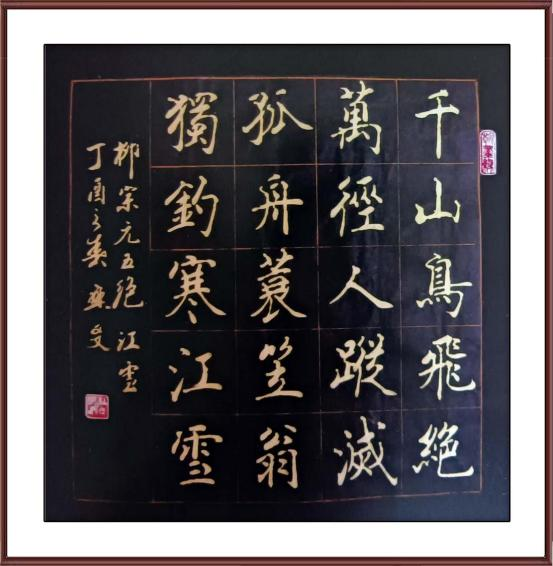 千山鳥飛絕
萬徑人蹤滅
孤舟蓑笠翁
獨釣寒江雪
柳宗元五绝 江雪
丁酉之春